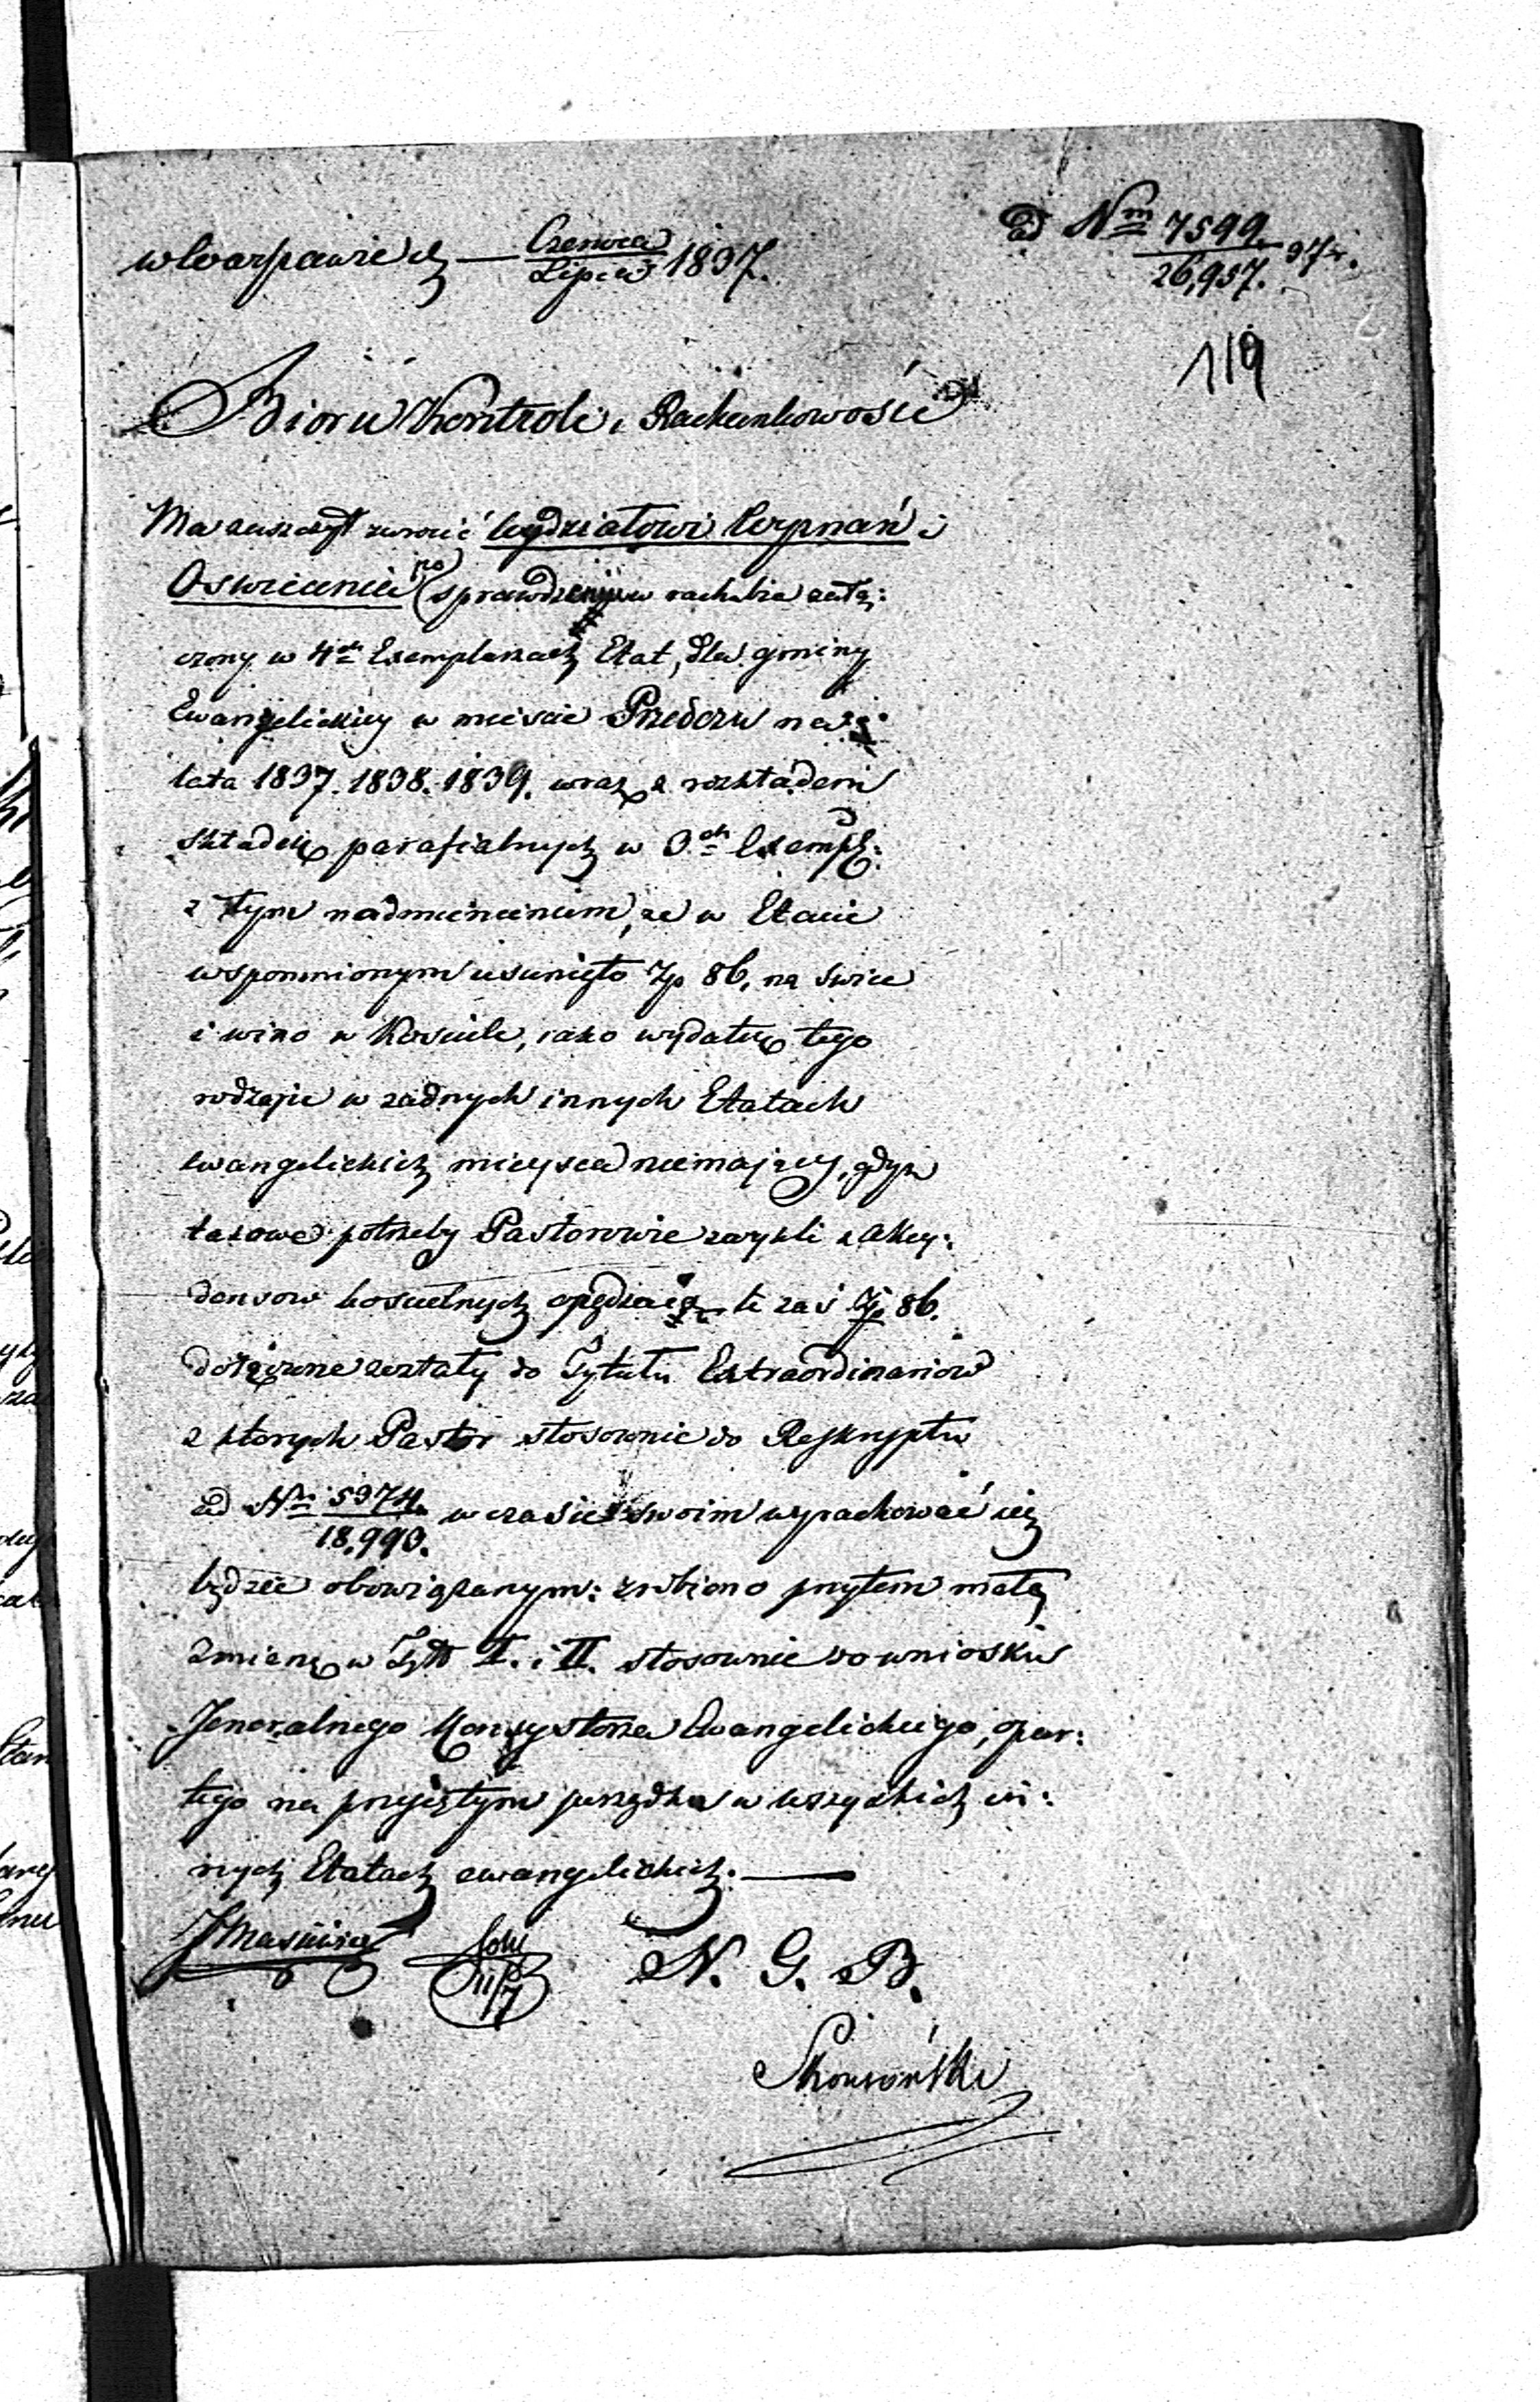 w Warszawie d. — Czerwca/Lipca 1837.
ad Nm 7599/26,957. 37 r.
119
Bióru Kontroli i Rachunkowości
Ma zaszczyt zwrócić Wydziałowi Wyznań i
Oświecenia po sprawdzeniu w rachubie załą:
czony w 4ch Exemplarzach Etat, dla gminy
Ewangelickiey w mieście Przedczu na
lata 1837. 1838. 1839. wraz z rozkładem
składek parafialnych w 3ch Exempl:
z tym nadmienieniem, że w Etacie
wspomnionym usunięto Zp 86, na świce
i wino w Kościele, iako wydatek tego
rodzaju w żadnych innych Etatach
ewangelickich mieysca niemaiący, gdyż
takowe potrzeby Pastorowie zwykli z akcy:
densow kościelnych opędzać te zaś Zp 86.
dołączone zostały do Tytułu Extraordinariow
z ktorych Pastor stosownie do Reskryptu
ad Nm 5374/18,993. w czasie swoim wyrachować się
będzie obowiązanym: zrobiono przytem małą
zmianę w Tytt I. i II. stosownie do wniosku
Jeneralnego Konsystorza Ewangelickiego, opar:
tego na przyiętym porządku w wszystkich in:
nych Etatach ewangelickich. —
11/7
N. G. B.